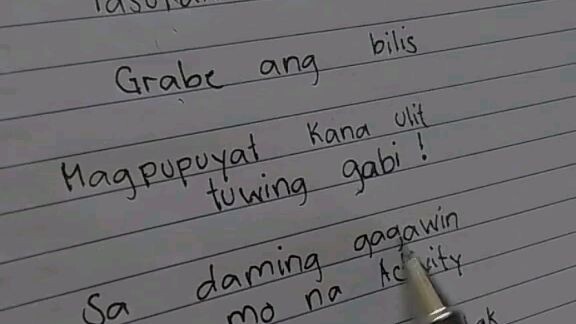 Grabe ang bilis
Magpupuyat kana ulit
tuwing gabi!
Sa daming gagawin
mo na Activity